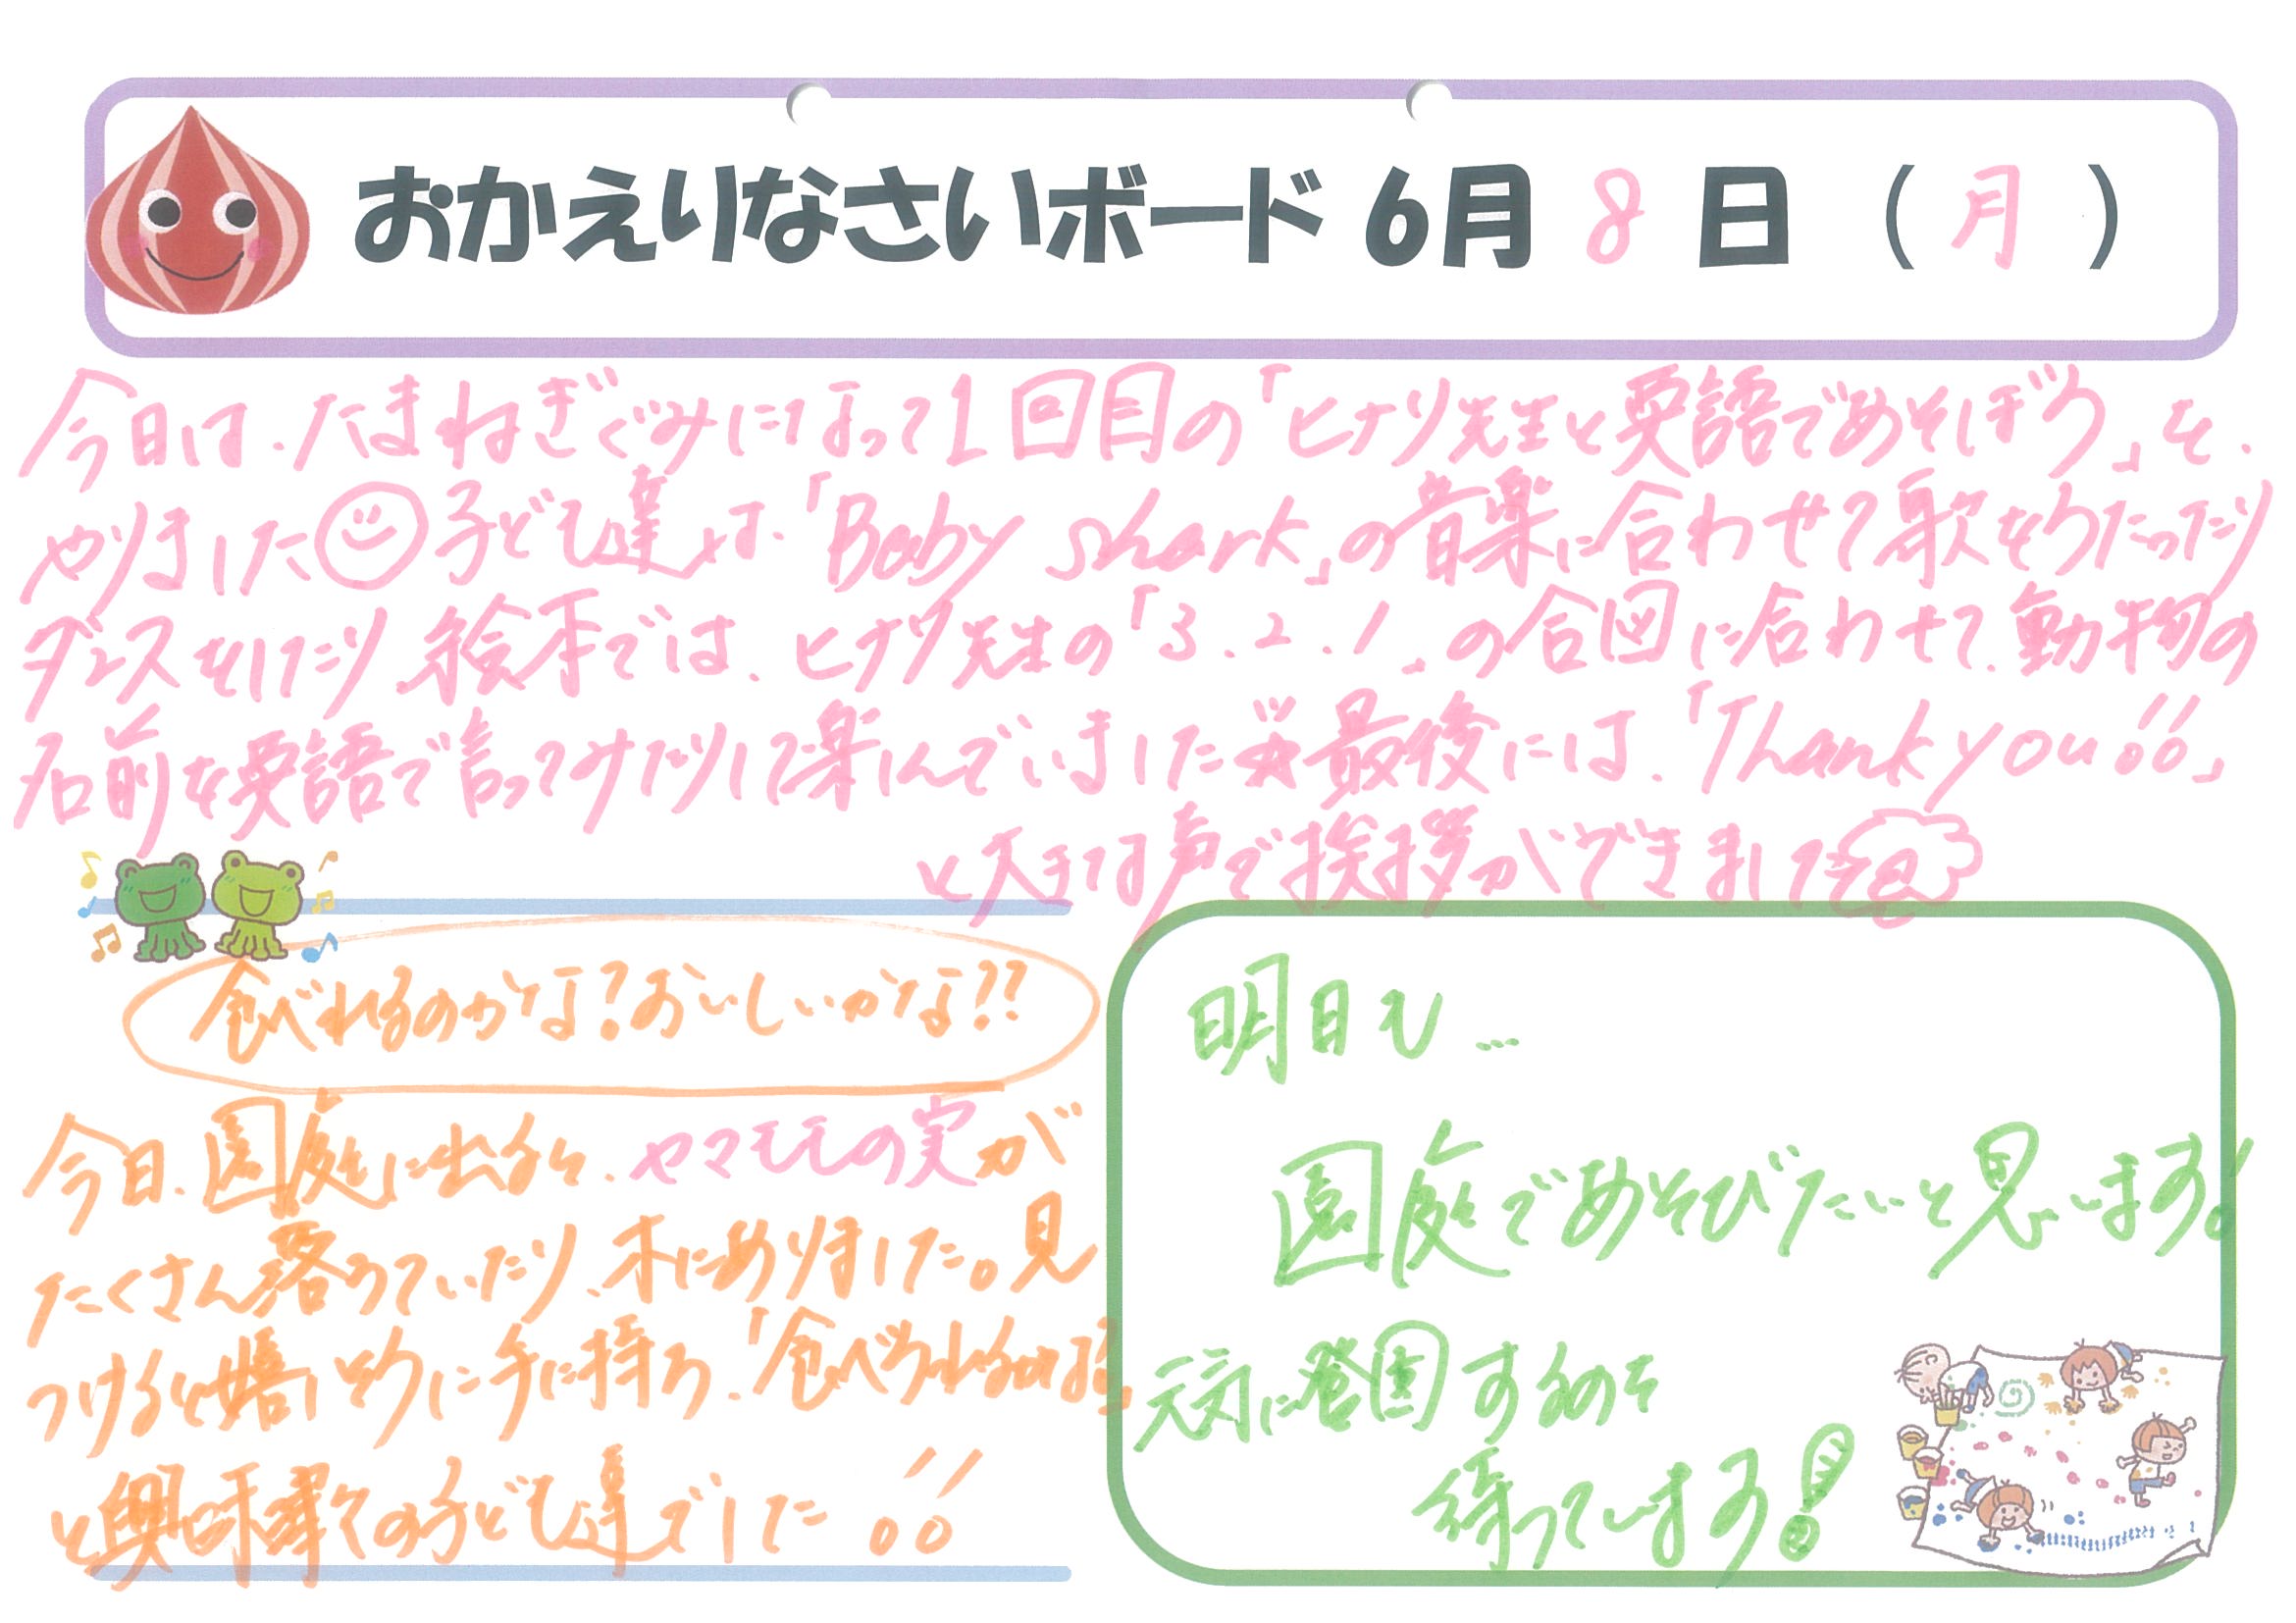 おかえりなさいボード 6月 8 日 ( 月 )
今日は、たまねぎぐみになって1回目の「ヒナリ先生と英語であそぼう」を、
やりました 子ども達は、「Baby shark」の音楽に合わせて歌をうたったり
ダンスをしたり、絵本では、ヒナリ先生の「3.2.1」の合図に合わせて、動物の
名前を英語で言ってみたりして楽しんでいました☆最後には、「Thank you!!」
と大きな声で挨拶ができました
食べれるのかな?おいしいかな??
今日、園庭に出ると、ヤマモモの実が
たくさん落ちていたり、木にありました。見
つけると嬉しそうに手に持ち、「食べられる
と興味津々の子ども達でした!!
明日も…
園庭であそびたいと思います!
元気に登園するのを
待っています!